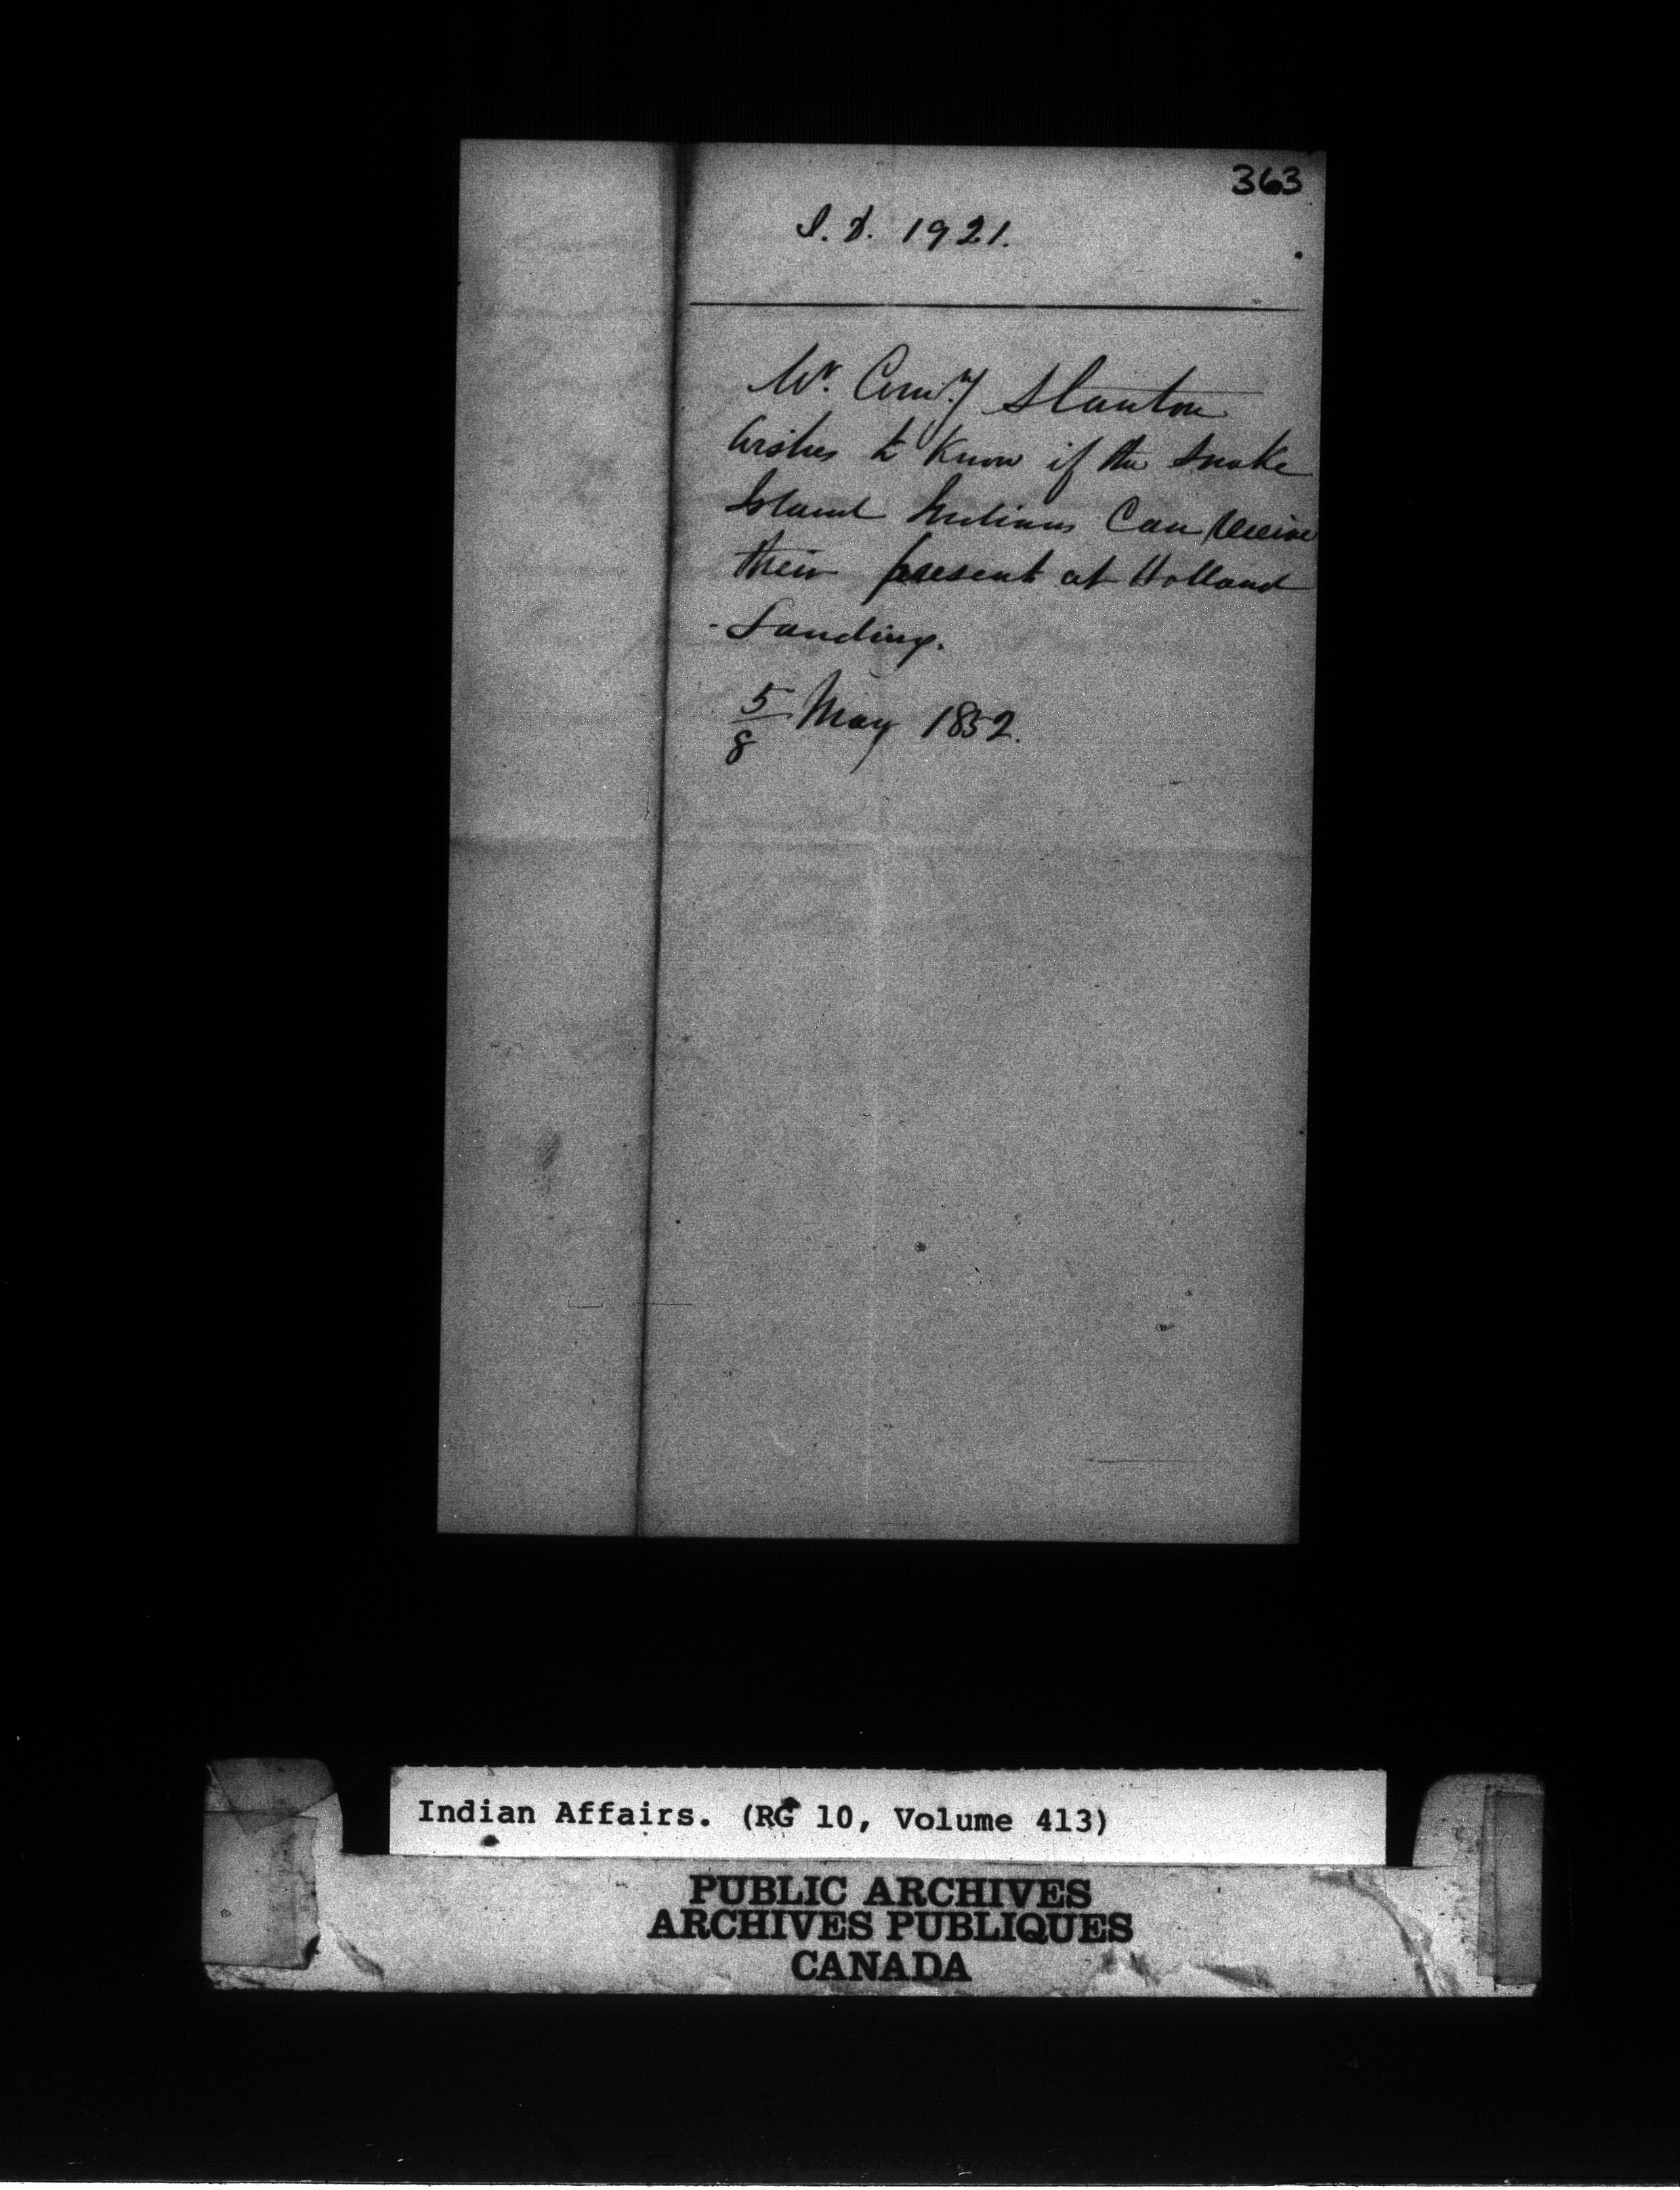 363
I.D. 1921.
Mr. Comy Stanton
wishes to know if the Snake
Island Indians can receive
their present at Holland
- Landing.
5/8 May 1852.
Indian Affairs. (RG 10, Volume 413)
PUBLIC ARCHIVES
ARCHIVES PUBLIQUES
CANADA